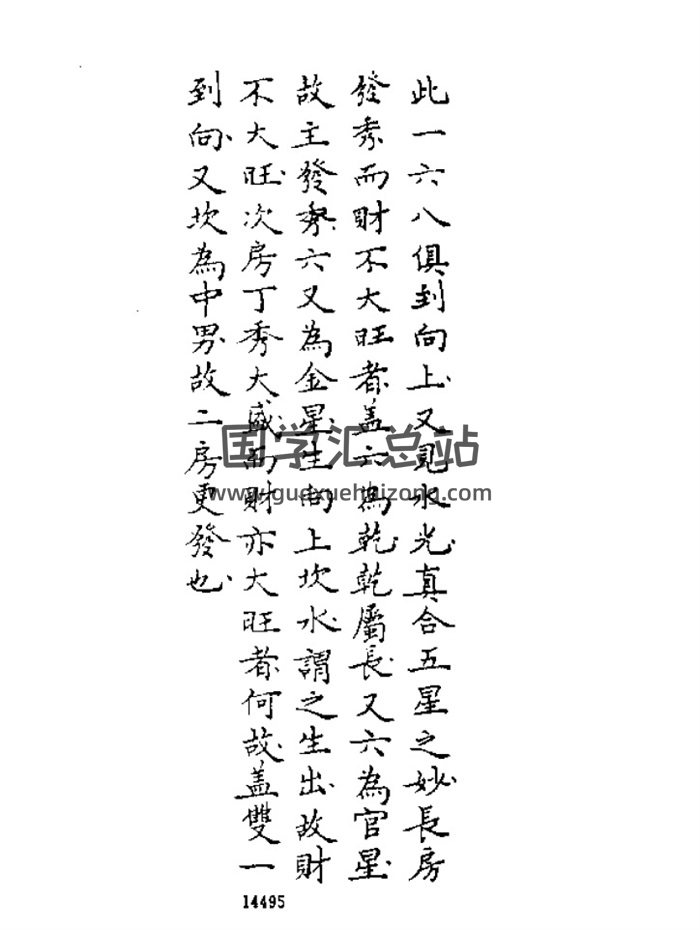 此一六八俱到向上又見水光真合五星之妙長房
發秀而財不大旺者蓋六為乾乾屬長又六為官星
故主發秀六又為金星生向上坎水謂之生出故財
不大旺次房丁秀大盛而財亦大旺者何故蓋雙一
到向又坎為中男故二房更發也
国学汇总站
www.guoxuehuizong.com
14495